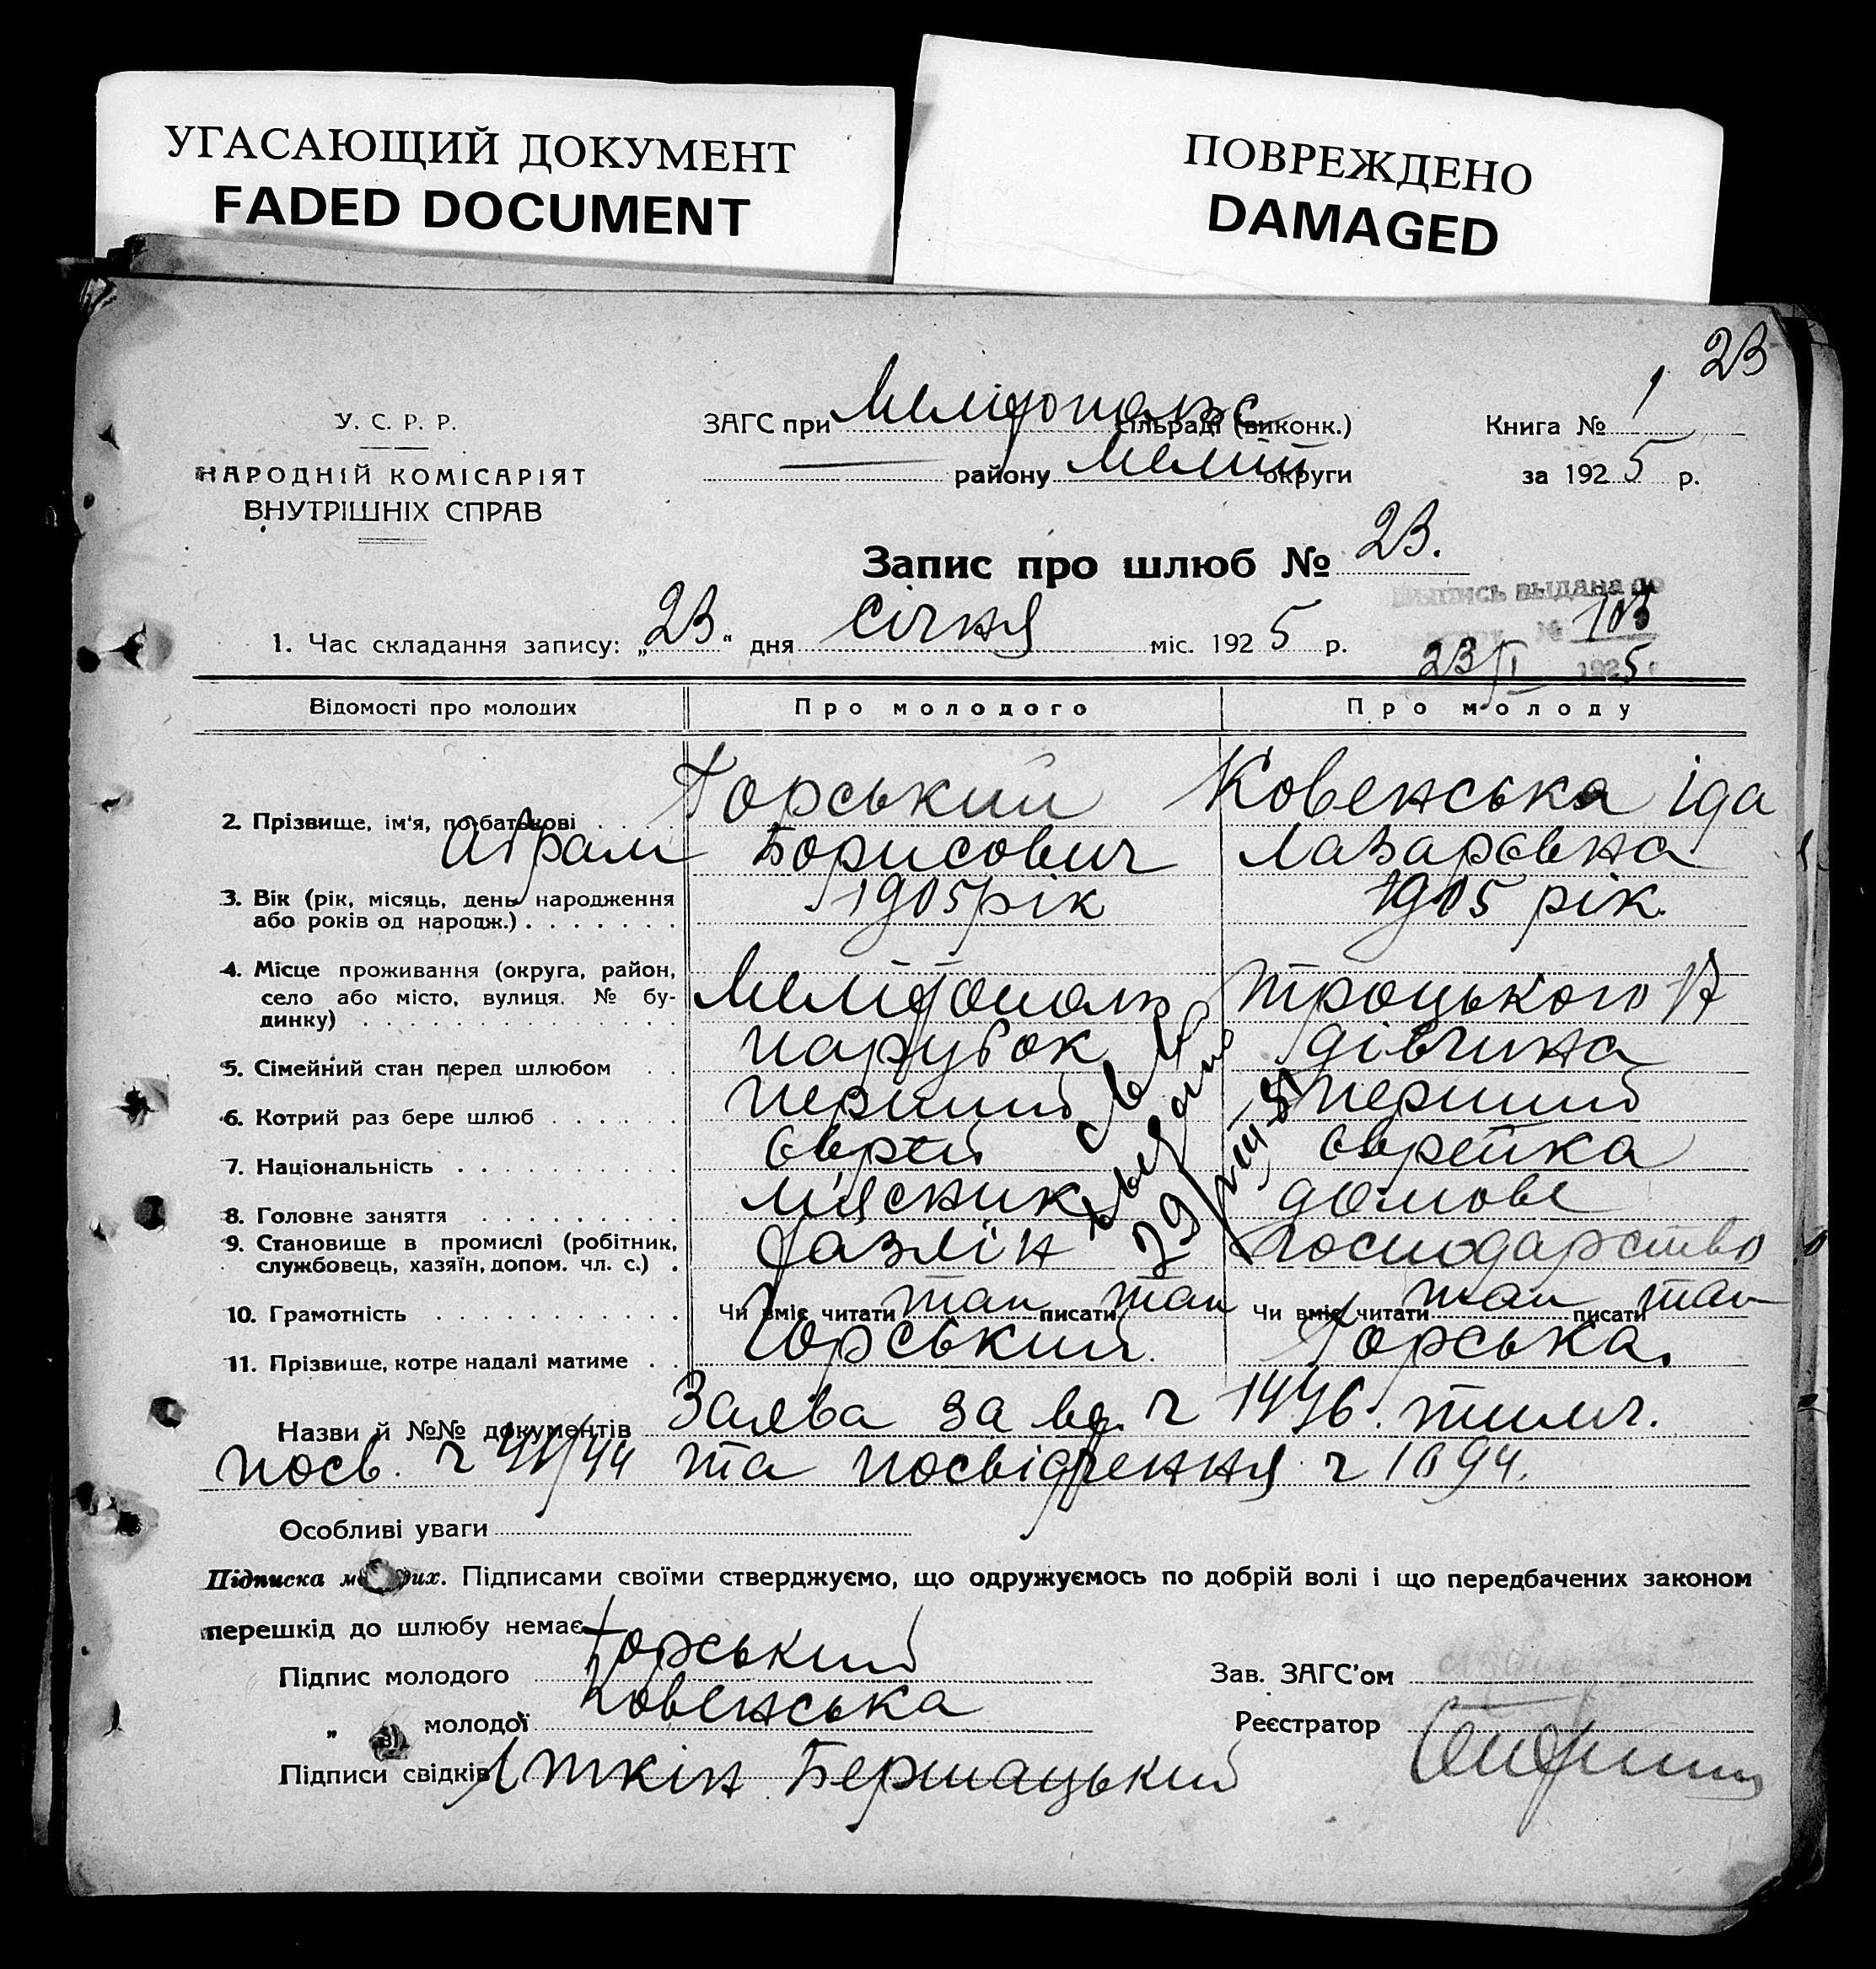 УГАСАЮЩИЙ ДОКУМЕНТ
FADED DOCUMENT
ПОВРЕЖДЕНО
DAMAGED
23
У. С. Р. Р.
НАРОДНІЙ КОМІСАРІЯТ
ВНУТРІШНІХ СПРАВ
ЗАГС при Мелітопольс сільраді (виконк.)
району Меліт округи
Книга № 1
за 1925 р.
Запис про шлюб № 23.
Выпись выдана по
№ 103
23/I 1925 г
1. Час складання запису: „23“ дня січня міс. 1925 р.
Відомості про молодих Про молодого Про молоду
2. Прізвище, ім'я, по батькові Горський Ковенська Іда
Абрам Борисович Лазарєвна
3. Вік (рік, місяць, день народження або років од народж.) 1905 рік 1905 рік.
4. Місце проживання (округа, район, село або місто, вулиця, № будинку) Мелітополь Троцького 17
5. Сімейний стан перед шлюбом парубок дівчина
6. Котрий раз бере шлюб перший перший
7. Національність єврей єврейка
8. Головне заняття м'ясник домове
9. Становище в промислі (робітник, службовець, хазяїн, допом. чл. с.) хазяїн господарство
10. Грамотність Чи вміє читати так писати так Чи вміє читати так писати так
11. Прізвище, котре надалі матиме Горський Горська.
Назви й №№ документів Заява за вд. ч 1446. тимч.
посв. ч 44/44 та посвідчення ч 1094.
Особливі уваги
Підписка молодих. Підписами своїми стверджуємо, що одружуємось по добрій волі і що передбачених законом
перешкід до шлюбу немає
Підпис молодого Горський
„ молодої Ковенська
Підписи свідків Іткін Бершацький
Зав. ЗАГС'ом
Реєстратор